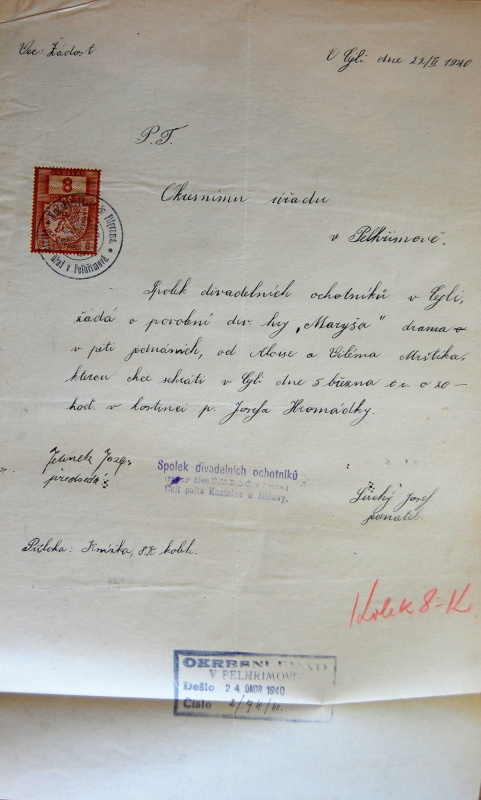 Věc: Žádost
V Cejli dne 22/II 1940
P. T.
8
Okresnímu úřadu
v Pelhřimově.
Spolek divadelních ochotníků v Cejli,
žádá o povolení div. hry „Maryša" drama
v pěti jednáních, od Aloise a Viléma Mrštíka,
kterou chce sehráti v Cejli dne 5 března t. r. o 20
hod. v hostinci p. Josefa Hromádky.
Jelínek Josef
předseda
Spolek divadelních ochotníků
Cejl pošta Kostelec u Jihlavy.
Šůchý Josef
jednatel
Příloha: Knížka, 8K kolk.
Kolek 8-K
OKRESNÍ ÚŘAD
V PELHŘIMOVĚ
Došlo 24 ÚNOR 1940
Číslo